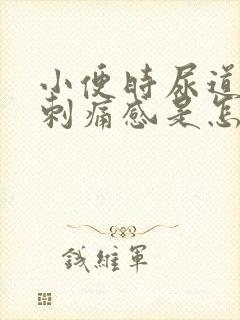 小便时尿道
刺痛感是怎
钱維軍